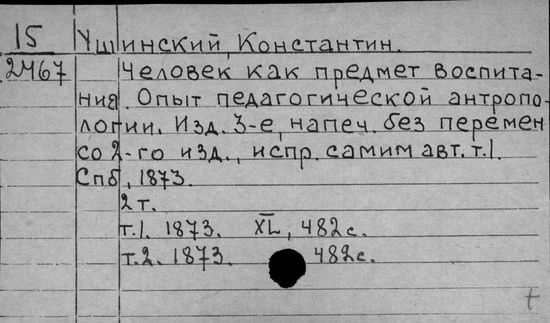 15 Ушинский, Константин.
2467 Человек как предмет воспита-
ния. Опыт педагогической антропо-
логии. Изд. 3-е, напеч. без перемен
со 2-го изд., испр. самим авт. т.1.
Спб, 1873.
2 т.
т.1. 1873. XL, 482 с.
т.2. 1873. 482 с.